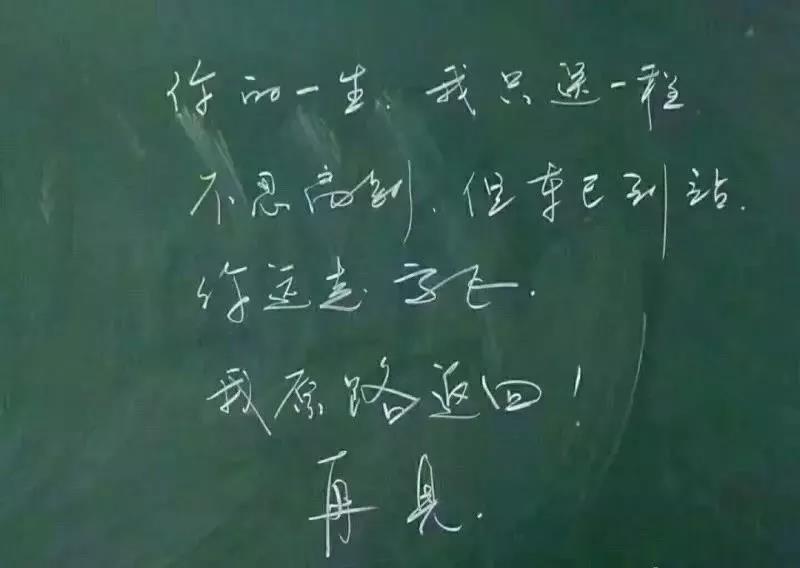 你的一生，我只送一程
不忍离别，但车已到站.
你远走高飞.
我原路返回！
再见.